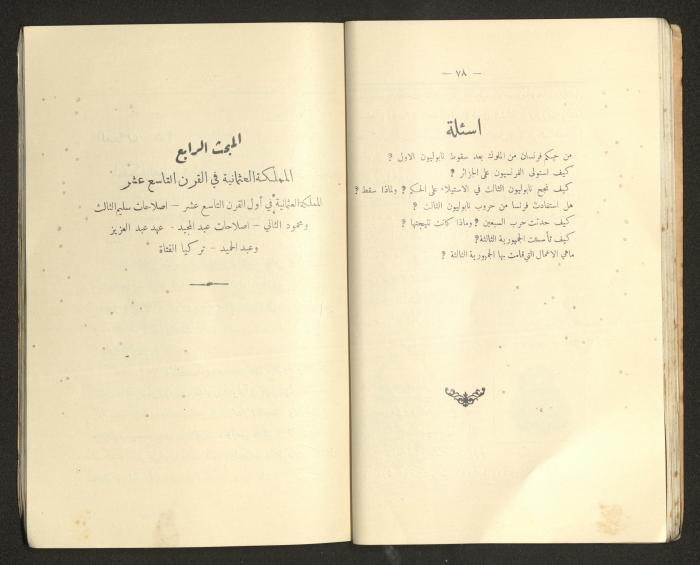 — ٧٨ —
اسئلة
من حكم فرنسان من الملوك بعد سقوط نابوليون الاول ؟
كيف استولى الفرنسيون على الجزائر ؟
كيف نجح نابوليون الثالث في الاستيلاء على الحكم ؟ ولماذا سقط ؟
هل استفادت فرنسا من حروب نابوليون الثالث ؟
كيف حدثت حرب السبعين ؟ وماذا كانت نتيجتها ؟
كيف تأسست الجمهورية الثالثة؟
ماهي الاعمال التي قامت بها الجمهورية الثالثة ؟
المبحث الرابع
المملكة العثمانية في القرن التاسع عشر
المملكة العثمانية في أول القرن التاسع عشر – اصلاحات سليم الثالث
ومحمود الثاني – اصلاحات عبد المجيد - عهد عبد العزيز
وعبد الحميد - تركيا الفتاة